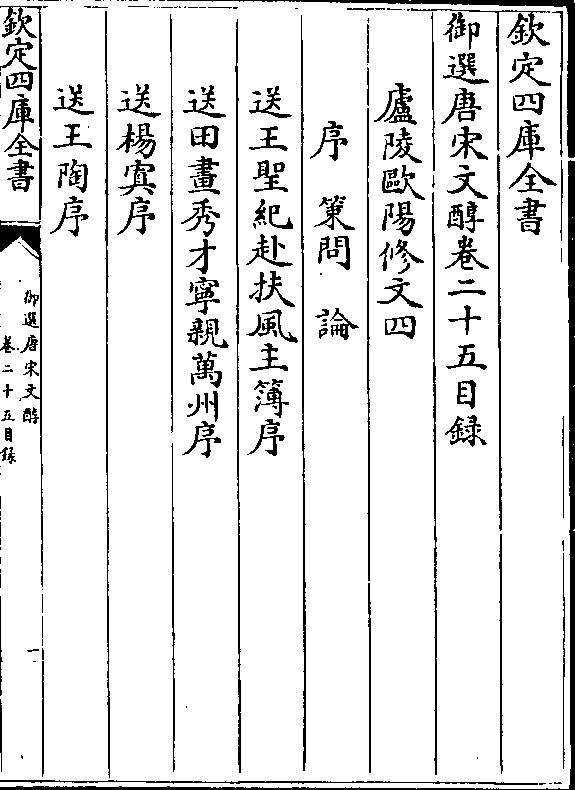 欽定四庫全書
御選唐宋文醇卷二十五目録
廬陵歐陽修文四
序 策問 論
送王聖紀赴扶風主簿序
送田畫秀才寧親萬州序
送楊寘序
送王陶序
欽定四庫全書
御選唐宋文醇
卷二十五目録
一